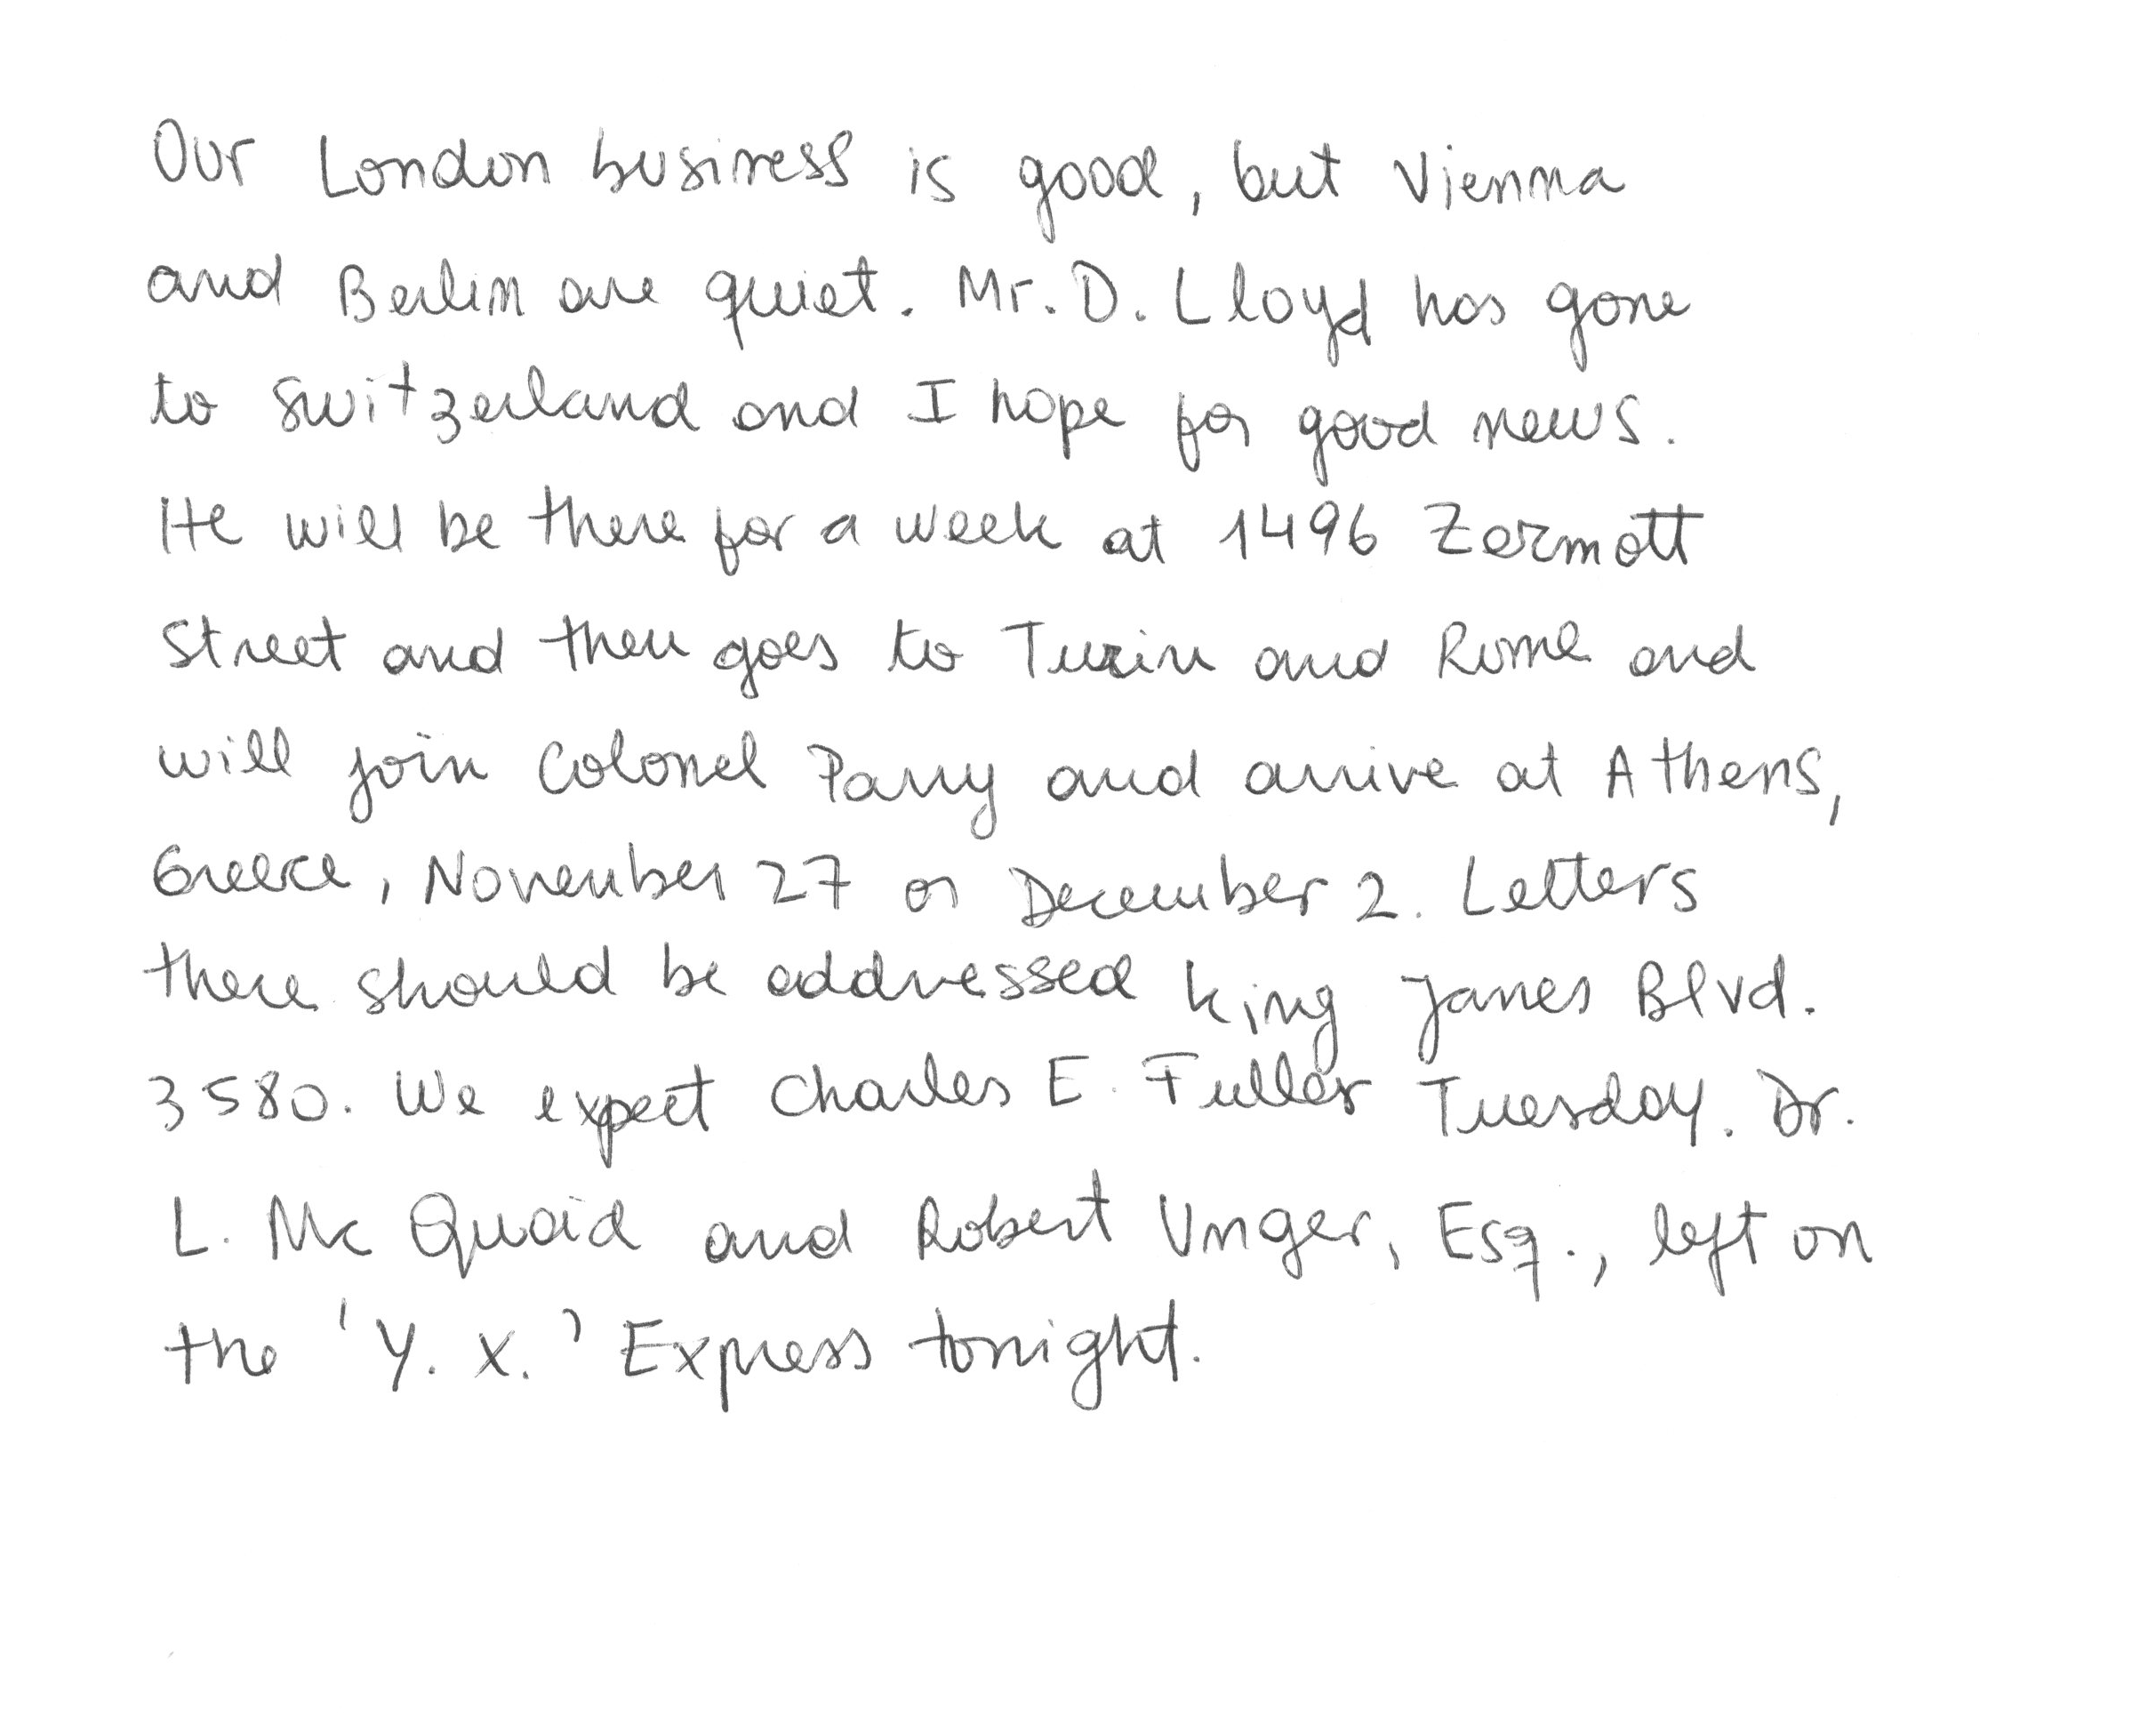 Our London business is good, but Vienna
and Berlin are quiet. Mr. D. Lloyd has gone
to Switzerland and I hope for good news.
He will be there for a week at 1496 Zermott
Street and then goes to Turin and Rome and
will join Colonel Parry and arrive at Athens,
Greece, November 27 or December 2. Letters
there should be addressed King James Blvd.
3580. We expect Charles E. Fuller Tuesday. Dr.
L. Mc Quaid and Robert Unger, Esq., left on
the 'Y. X.' Express tonight.